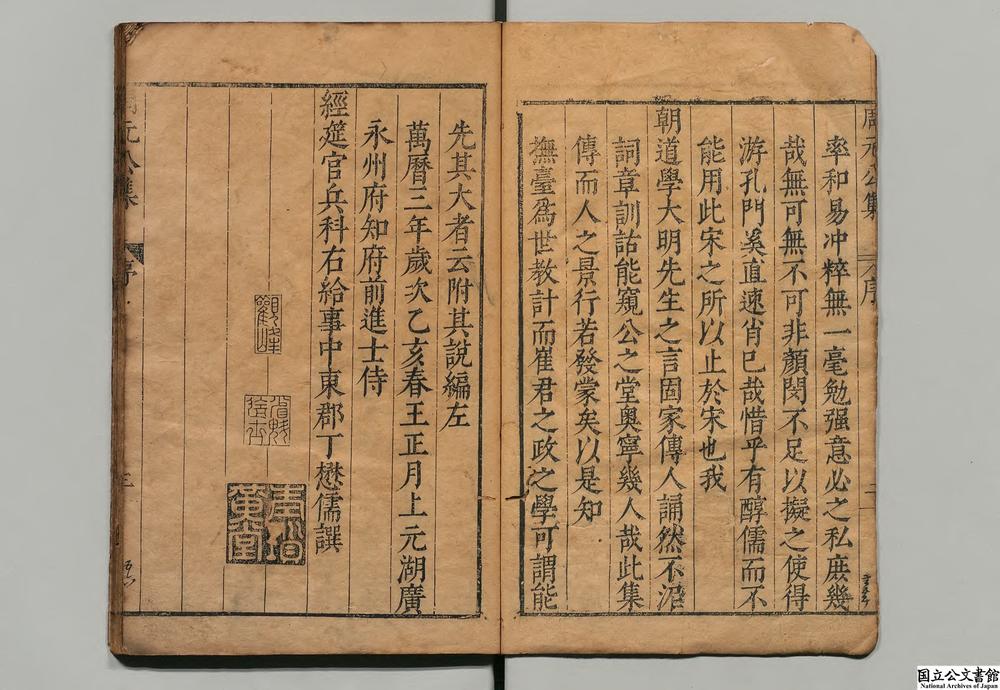 周元公集
序
率和易冲粹無一毫勉强意必之私庶幾
哉無可無不可非顏閔不足以擬之使得
游孔門奚直速肖已哉惜乎有醇儒而不
能用此宋之所以止於宋也我
朝道學大明先生之言固家傳人誦然不泥
詞章訓詁能窺公之堂奧寧幾人哉此集
傳而人之景行若發蒙矣以是知
撫臺爲世教計而崔君之政之學可謂能
先其大者云附其說編左
萬曆三年歲次乙亥春王正月上元湖廣
永州府知府前進士侍
經筵官兵科右給事中東郡丁懋儒譔
元公集
序
三
国立公文書館
National Archives of Japan